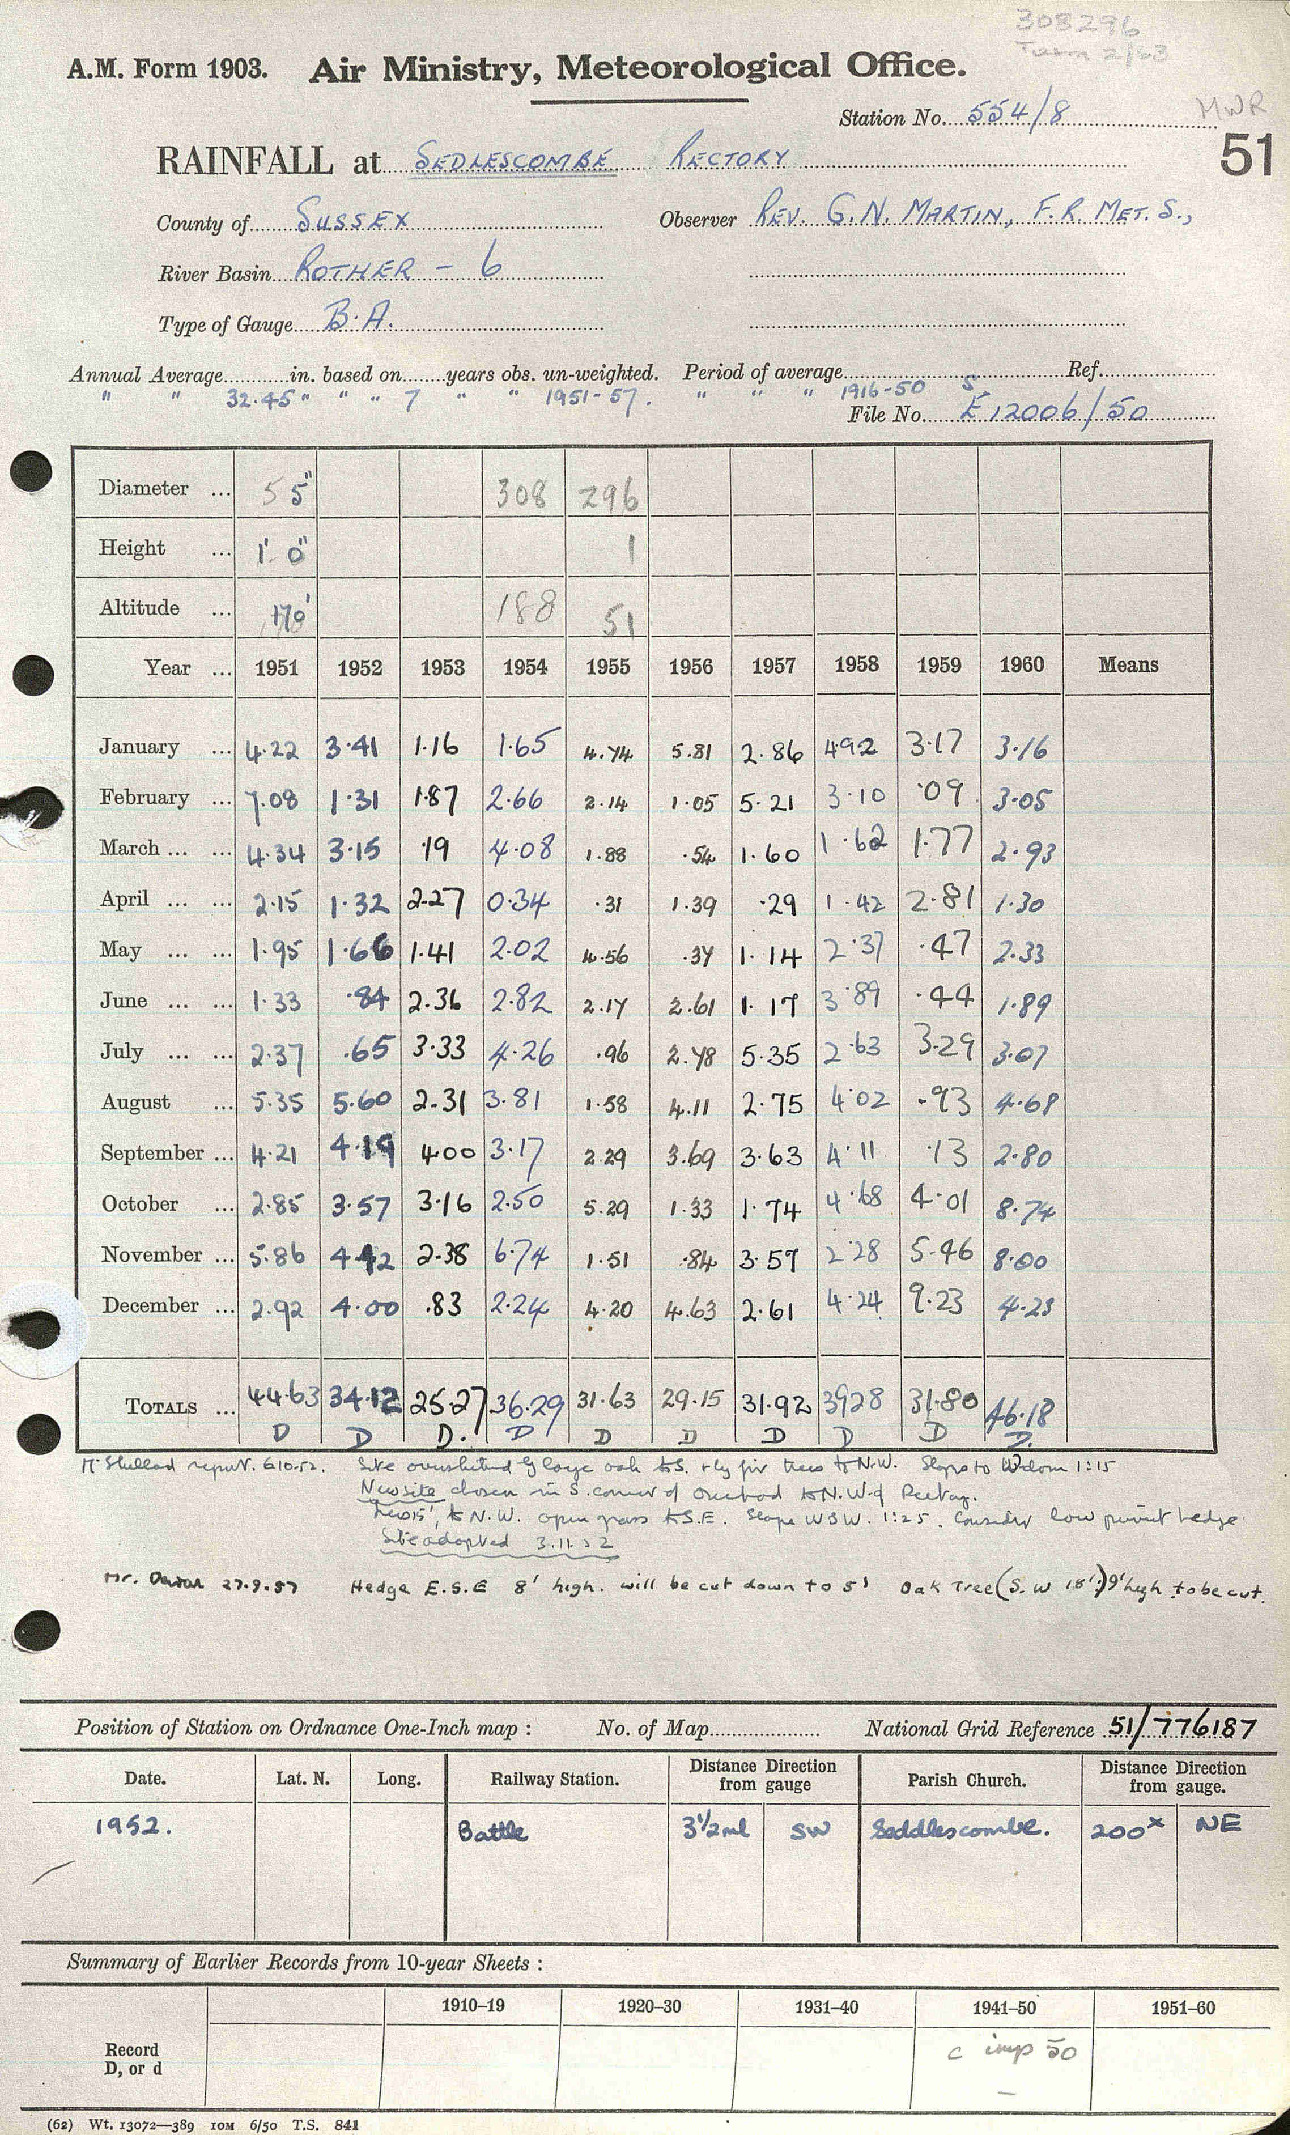 308296
A.M. Form 1903. Air Ministry, Meteorological Office.
Station No. 554/8 MWR
RAINFALL at SEDLESCOMBE RECTORY 51
County of SUSSEX Observer REV. G.N. MARTIN, F.R. MET. S.,
River Basin ROTHER - 6
Type of Gauge B.A.
Annual Average in. based on years obs. un-weighted. Period of average Ref.
" " 32.45 " " " 7 " " 1951-57. " " " 1916-50
File No. E 12006/50
Diameter ... 5 5" 308 296
Height ... 1' 0" 1
Altitude ... 188 51
Year ... 1951 1952 1953 1954 1955 1956 1957 1958 1959 1960 Means
January ... 4.22 3.41 1.16 1.65 4.74 5.81 2.86 4.92 3.17 3.16
February ... 7.08 1.31 1.87 2.66 2.14 1.05 5.21 3.10 .09 3.05
March ... ... 4.34 3.15 .19 4.08 1.88 .54 1.60 1.62 1.77 2.93
April ... ... 2.15 1.32 2.27 0.34 .31 1.39 .29 1.42 2.81 1.30
May ... ... 1.95 1.66 1.41 2.02 4.56 .37 1.14 2.37 .47 2.33
June ... ... 1.33 .84 2.36 2.82 2.17 2.61 1.17 3.89 .44 1.89
July ... ... 2.37 .65 3.33 4.26 .96 2.78 5.35 2.63 3.29 3.07
August ... 5.35 5.60 2.31 3.81 1.58 4.11 2.75 4.02 .93 4.68
September ... 4.21 4.19 4.00 3.17 2.29 3.69 3.63 4.11 .13 2.80
October ... 2.85 3.57 3.16 2.50 5.29 1.33 1.74 4.68 4.01 8.74
November ... 5.86 4.42 2.38 6.74 1.51 .84 3.57 2.28 5.46 8.00
December ... 2.92 4.00 .83 2.24 4.20 4.63 2.61 4.24 9.23 4.23
TOTALS ... 44.63 34.12 25.27 36.29 31.63 29.15 31.92 39.28 31.80 46.18
D D D. D D D D D D D.
Mr Shellard report. 6.10.52. Site oversheltered by large oak to S. + by fir trees to N.W. Slopes to 1:15
New site chosen in S. corner of orchard to N.W. of Rectory.
to N.W. open grass to S.E. Slope WSW. 1:25. Consider low privet hedge
Site adopted 3.11.52
Mr. 27.9.57 Hedge E.S.E 8' high. will be cut down to 5' Oak Tree (S.W 18') 9' high to be cut.
Position of Station on Ordnance One-Inch map : No. of Map National Grid Reference 51/776187
Date. Lat. N. Long. Railway Station. Distance Direction from gauge Parish Church. Distance Direction from gauge.
1952. Battle 3½ml SW Seddlescombe. 200x NE
Summary of Earlier Records from 10-year Sheets :
1910–19 1920–30 1931–40 1941–50 1951–60
Record
D, or d
c imp 50
(62) Wt. 13072—389 10M 6/50 T.S. 841